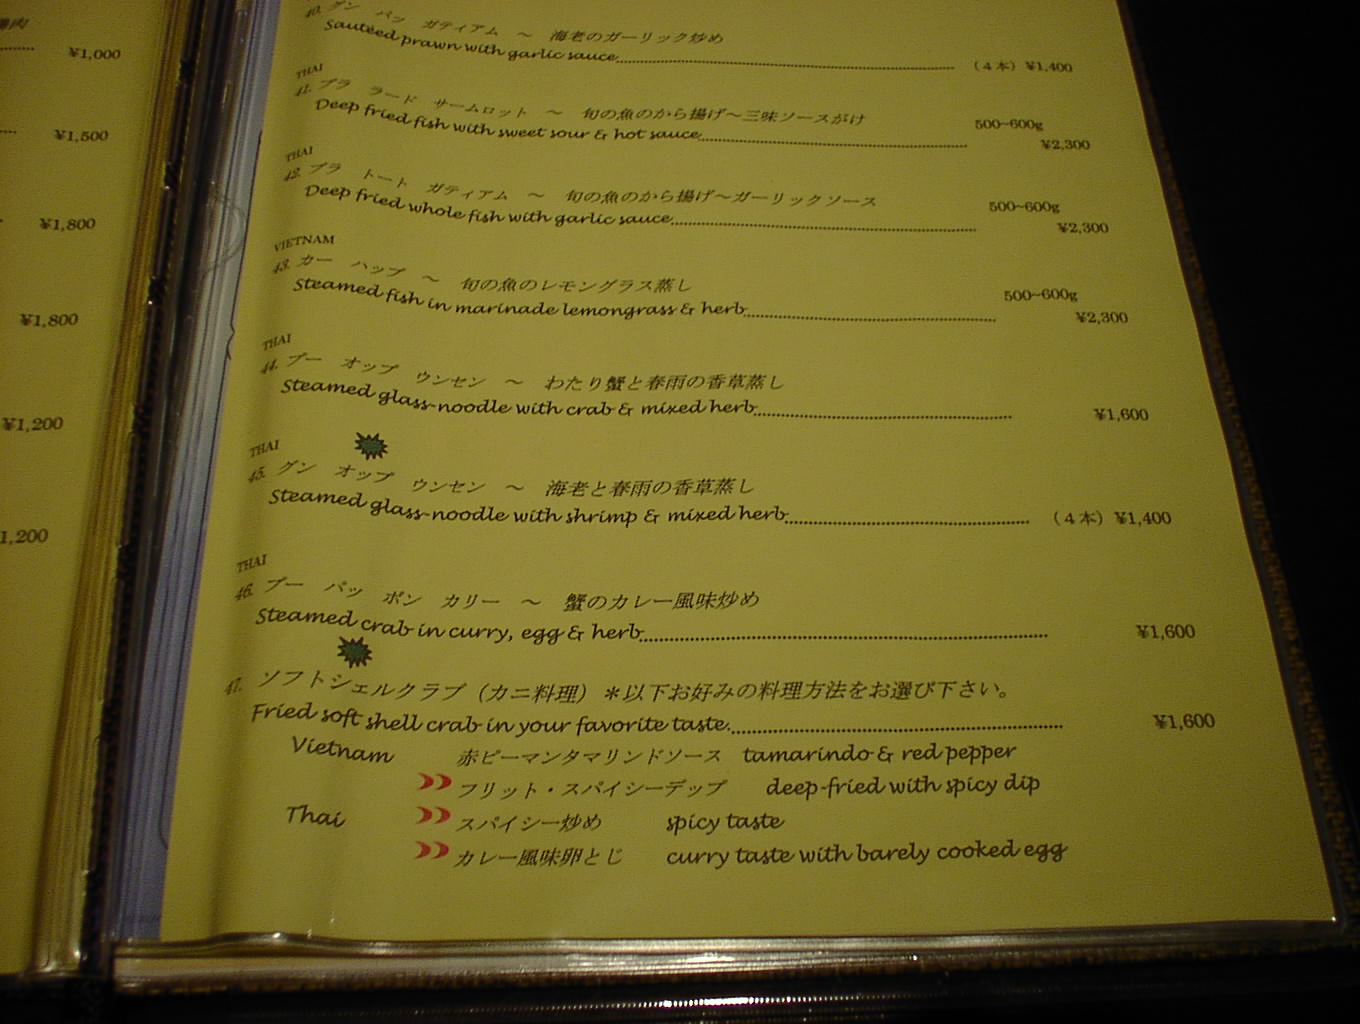 鶏肉
¥1,000
¥1,500
¥1,800
¥1,800
¥1,200
1,200
40. グン パッ ガティアム ～ 海老のガーリック炒め
Sauteed prawn with garlic sauce (４本) ¥1,400
THAI
41. プラ ラード サームロット ～ 旬の魚のから揚げ～三味ソースがけ 500~600g
Deep fried fish with sweet sour & hot sauce ¥2,300
THAI
42. プラ トート ガティアム ～ 旬の魚のから揚げ～ガーリックソース 500~600g
Deep fried whole fish with garlic sauce ¥2,300
VIETNAM
43. カー ハップ ～ 旬の魚のレモングラス蒸し 500~600g
Steamed fish in marinade lemongrass & herb ¥2,300
THAI
44. プー オップ ウンセン ～ わたり蟹と春雨の香草蒸し
Steamed glass-noodle with crab & mixed herb ¥1,600
THAI
45. グン オップ ウンセン ～ 海老と春雨の香草蒸し
Steamed glass-noodle with shrimp & mixed herb (４本) ¥1,400
THAI
46. プー パッ ポン カリー ～ 蟹のカレー風味炒め
Steamed crab in curry, egg & herb ¥1,600
47. ソフトシェルクラブ（カニ料理）＊以下お好みの料理方法をお選び下さい。
Fried soft shell crab in your favorite taste. ¥1,600
Vietnam 赤ピーマンタマリンドソース tamarindo & red pepper
フリット・スパイシーデップ deep-fried with spicy dip
Thai スパイシー炒め spicy taste
カレー風味卵とじ curry taste with barely cooked egg